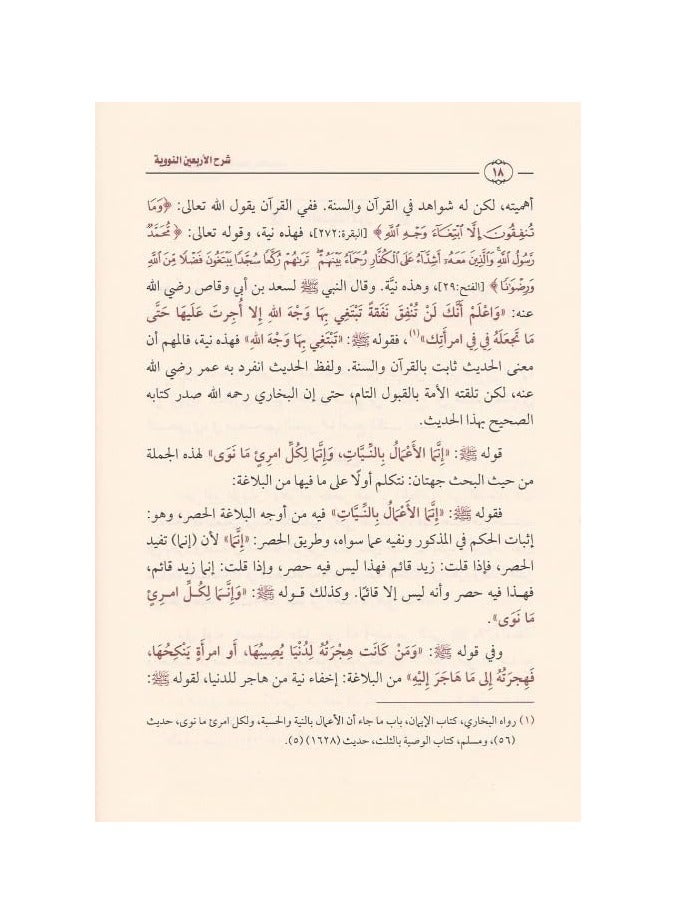 شرح الأربعين النووية
١٨
أهميته، لكن له شواهد في القرآن والسنة. ففي القرآن يقول الله تعالى: ﴿وَمَا
تُنفِقُونَ إِلَّا ٱبْتِغَآءَ وَجْهِ ٱللَّهِ﴾ [البقرة:٢٧٢]، فهذه نية، وقوله تعالى: ﴿مُّحَمَّدٌ
رَّسُولُ ٱللَّهِ وَٱلَّذِينَ مَعَهُۥٓ أَشِدَّآءُ عَلَى ٱلْكُفَّارِ رُحَمَآءُ بَيْنَهُمْ ۖ تَرَىٰهُمْ رُكَّعًا سُجَّدًا يَبْتَغُونَ فَضْلًا مِّنَ ٱللَّهِ
وَرِضْوَٰنًا﴾ [الفتح:٢٩]، وهذه نيَّة. وقال النبي ﷺ لسعد بن أبي وقاص رضي الله
عنه: «وَاعْلَمْ أَنَّكَ لَنْ تُنْفِقَ نَفَقَةً تَبْتَغِي بِهَا وَجْهَ اللهِ إِلا أُجِرتَ عَلَيهَا حَتَّى
مَا تَجْعَلَهُ فِي فِي امرأَتِك»(١)، فقوله ﷺ: «تَبْتَغِي بِهَا وَجْهَ اللهِ» فهذه نية، فالمهم أن
معنى الحديث ثابت بالقرآن والسنة. ولفظ الحديث انفرد به عمر رضي الله
عنه، لكن تلقته الأمة بالقبول التام، حتى إن البخاري رحمه الله صدر كتابه
الصحيح بهذا الحديث.
قوله ﷺ: «إِنَّمَا الأَعْمَالُ بِالنِّيَّاتِ، وَإِنَّمَا لِكُلِّ امرِئٍ مَا نَوَى» لهذه الجملة
من حيث البحث جهتان: نتكلم أولًا على ما فيها من البلاغة:
فقوله ﷺ: «إِنَّمَا الأَعْمَالُ بِالنِّيَّاتِ» فيه من أوجه البلاغة الحصر، وهو:
إثبات الحكم في المذكور ونفيه عما سواه، وطريق الحصر: «إِنَّمَا» لأن (إنما) تفيد
الحصر، فإذا قلت: زيد قائم فهذا ليس فيه حصر، وإذا قلت: إنما زيد قائم،
فهذا فيه حصر وأنه ليس إلا قائمًا. وكذلك قوله ﷺ: «وَإِنَّمَا لِكُلِّ امرِئٍ
مَا نَوَى».
وفي قوله ﷺ: «وَمَنْ كَانَت هِجْرَتُهُ لِدُنْيَا يُصِيبُهَا، أَو امرأَةٍ يَنْكِحُهَا،
فَهِجرَتُهُ إِلى مَا هَاجَرَ إِلَيْهِ» من البلاغة: إخفاء نية من هاجر للدنيا، لقوله ﷺ:
(١) رواه البخاري، كتاب الإيمان، باب ما جاء أن الأعمال بالنية والحسبة، ولكل امرئ ما نوى، حديث
(٥٦)، ومسلم، كتاب الوصية بالثلث، حديث (١٦٢٨) (٥).